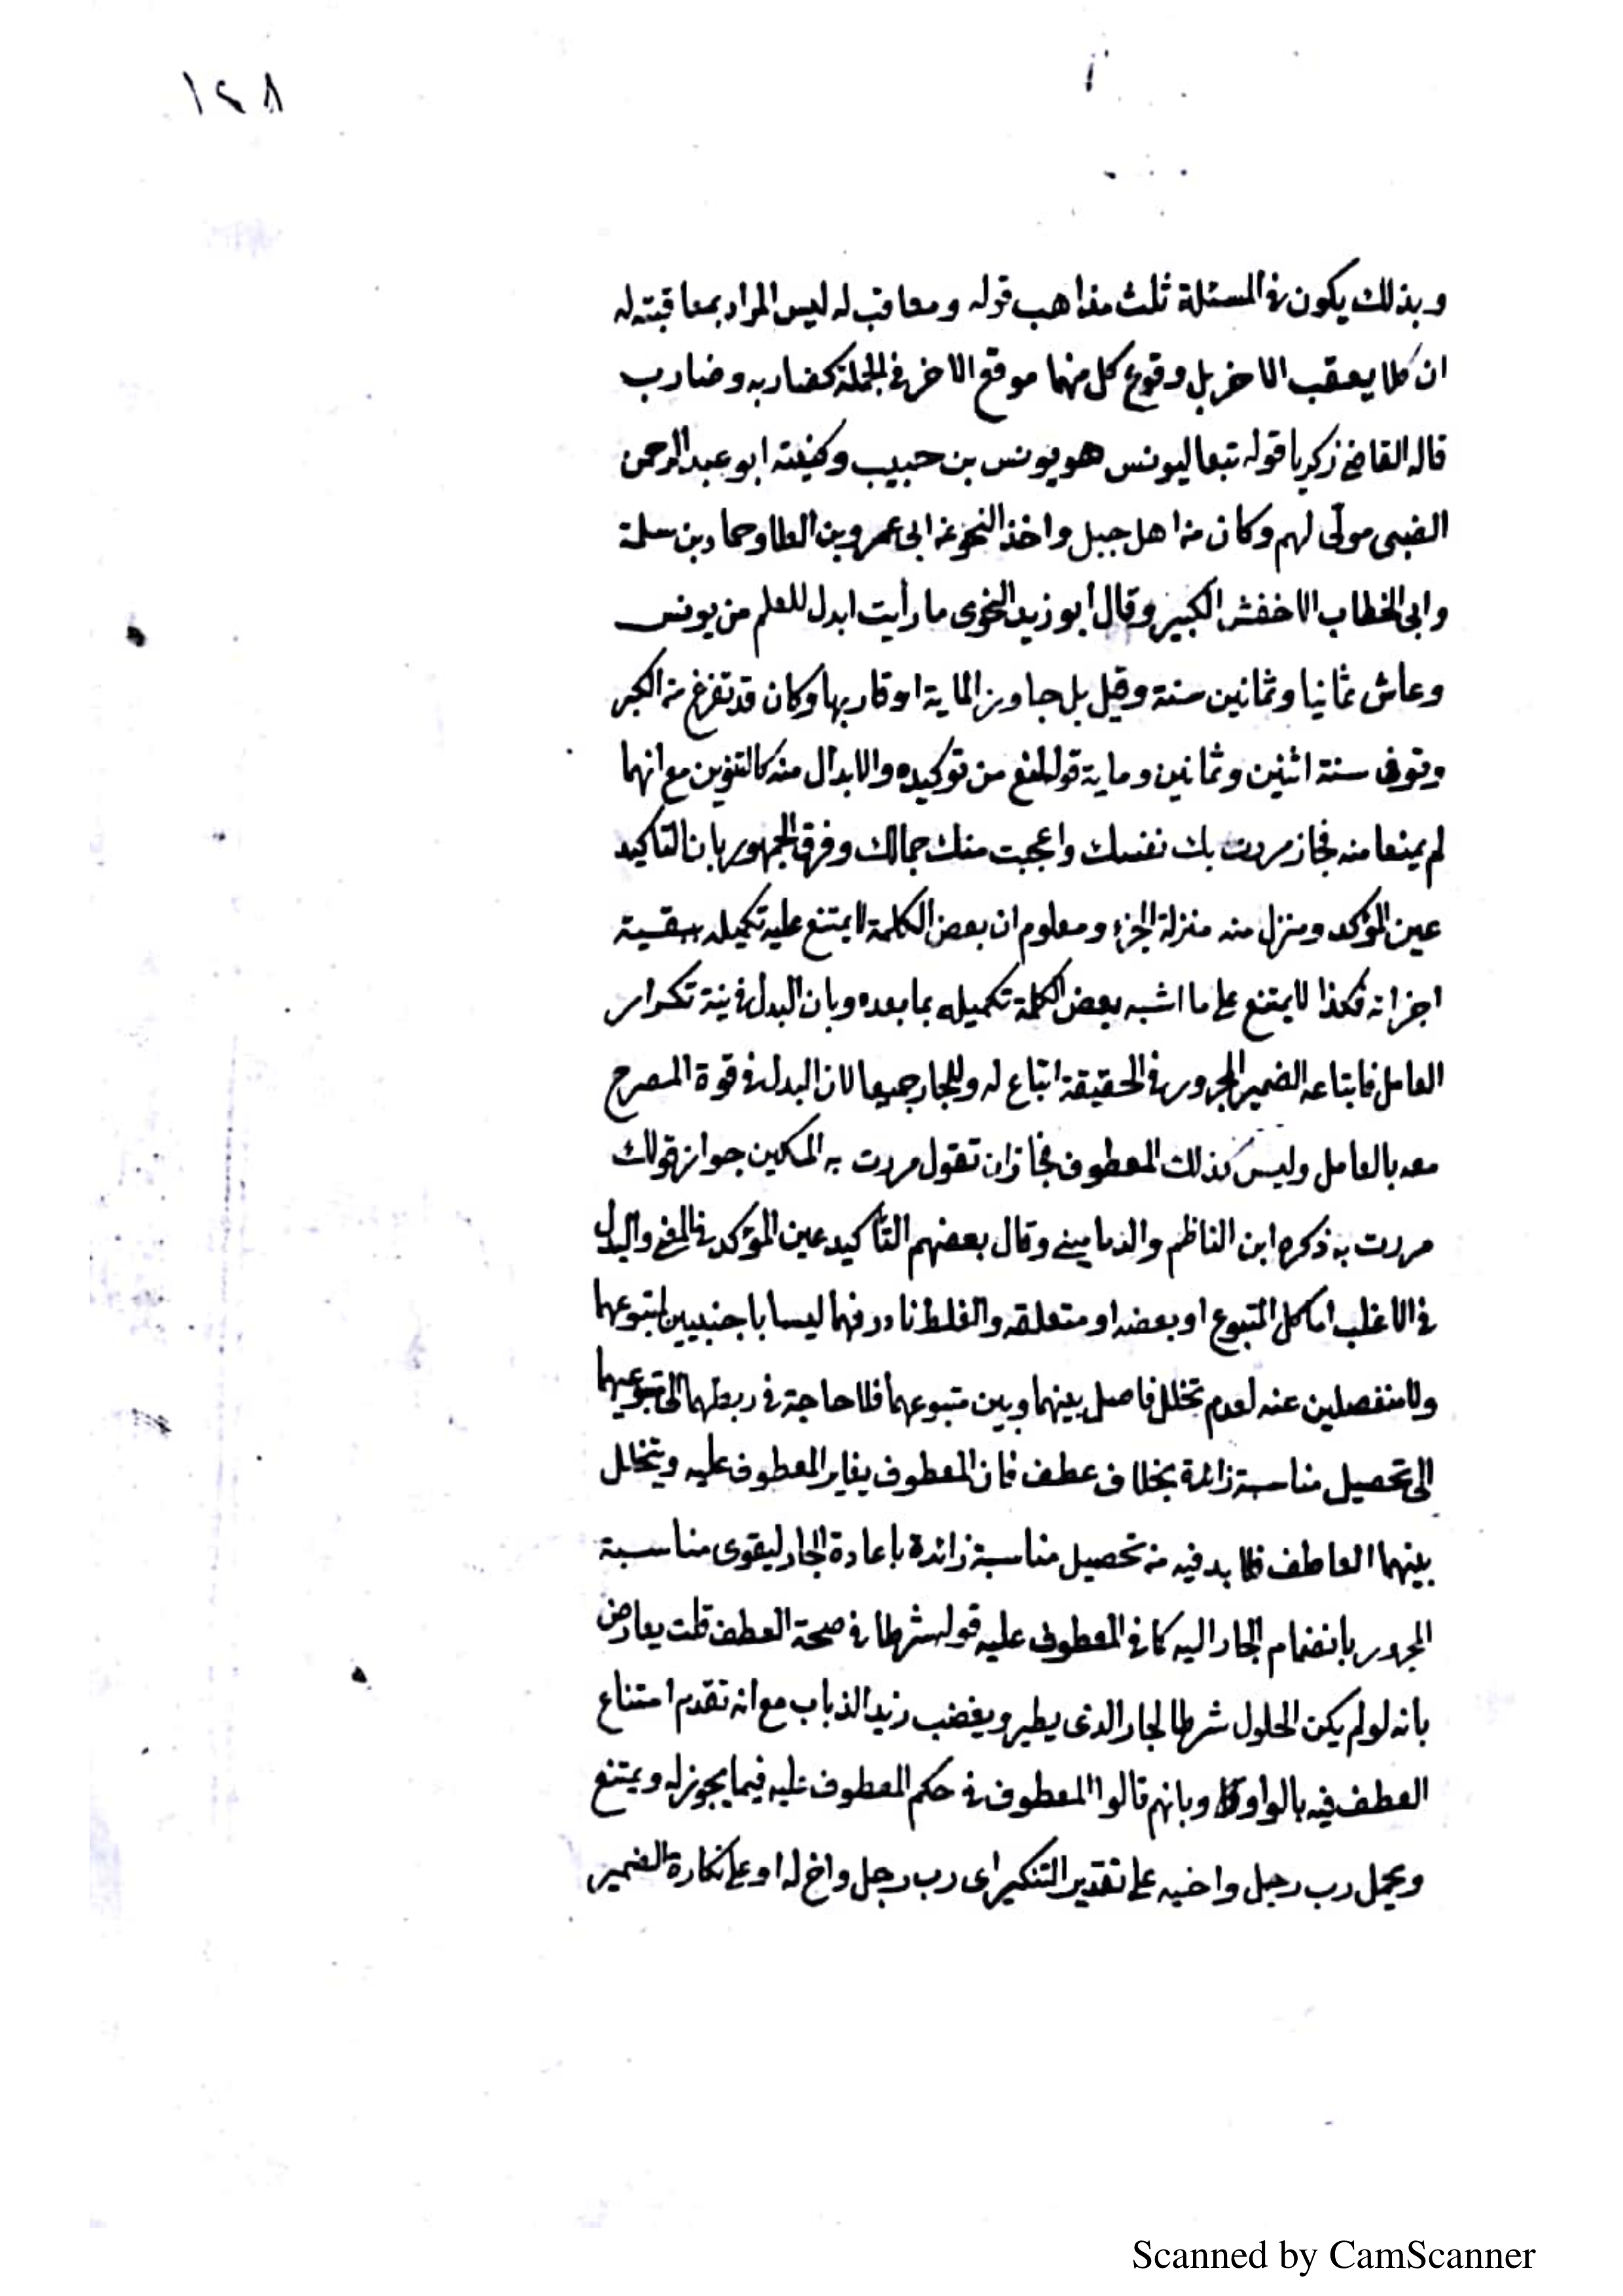 ١٢٨
وبذلك يكون في المسئلة ثلث مذاهب قوله ومعاقب له ليس المراد بمعاقبته له
ان كلا يعقب الاخر بل وقوع كل منهما موقع الاخر في الجملة كضاربه وضارب
قاله القاضي زكريا قوله تبعا ليونس هو يونس بن حبيب وكنيته ابو عبد الرحمن
الضبي مولى لهم وكان من اهل جبل واخذ النحو عن ابي عمرو بن العلا وحماد بن سلمة
وابي الخطاب الاخفش الكبير وقال أبو زيد النحوي ما رأيت ابدل للعلم من يونس
وعاش ثمانيا وثمانين سنة وقيل بل جاوز الماية او قاربها وكان قد تفرغ من الكبر
وتوفى سنة اثنين وثمانين وماية قوله لمنع من توكيده والابدال منه كالتنوين مع انهما
لم يمنعا منه فجاز مررت بك نفسك واعجبت منك جمالك وفرق الجمهور بان التاكيد
عين المؤكد ومنزل منه منزلة الجزء ومعلوم ان بعض الكلمة لا يمتنع عليه تكميله ببقية
اجزائه فكذا لا يمتنع على ما اشبه بعض الكلمة تكميله بما بعده وبان البدل في نية تكرار
العامل فاتباعه الضمير المجرور في الحقيقة اتباع له وللجار جميعا لان البدل في قوة المصرح
معه بالعامل وليس كذلك المعطوف فجاز ان تقول مررت به المسكين جواز قولك
مررت به ذكره ابن الناظم والدماميني وقال بعضهم التأكيد عين المؤكد في المعنى والبدل
في الاغلب اما كل المتبوع او بعضه او متعلقه والغلط نادر فهما ليسا باجنبيين لمتبوعهما
ولا منفصلين عنه لعدم تخلل فاصل بينهما وبين متبوعهما فلا حاجة في ربطهما الى متبوعيهما
الى تحصيل مناسبة زائدة بخلاف عطف فان المعطوف يغاير المعطوف عليه ويتخلل
بينهما العاطف فلا بد فيه من تحصيل مناسبة زائدة باعادة الجار ليقوى مناسبة
المجرور بانضمام الجار اليه كما في المعطوف عليه قوله شرطا في صحة العطف قلت يعارض
بانه لو لم يكن الحلول شرطا لجاز الذى يطير ويغضب زيد الذباب مع انه تقدم امتناع
العطف فيه بالواو وبانهم قالوا المعطوف في حكم المعطوف عليه فيما يجوز له ويمتنع
ويحمل رب رجل واخيه على تقدير التنكير اى رب رجل واخ له او على نكارة الضمير
Scanned by CamScanner